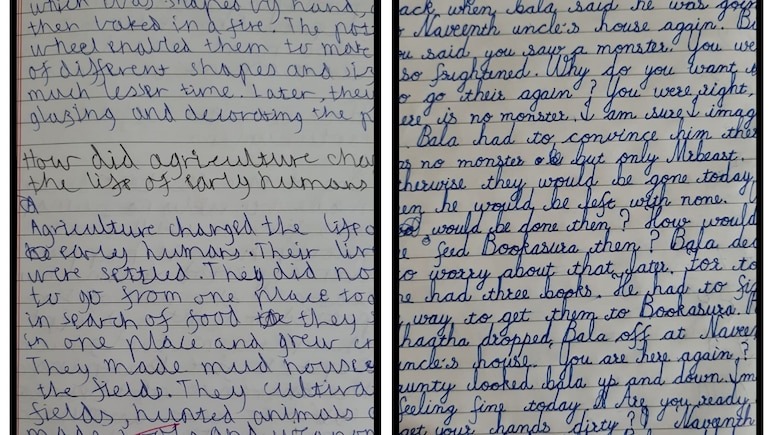 which was shaped by hand,
then baked in a fire. The pot
wheel enabled them to make
of different shapes and si
much lesser time. Later, they
glazing and decorating the p
How did agriculture cha
the life of early humans
Agriculture changed the life o
early humans. Their liv
were settled. They did no
to go from one place to
in search of food they s
in one place and grew cr
They made mud houses
the fields. They cultiva
fields, hunted animals
and
ack when bala said he was goin
Naveenth uncle's house again. Bu
ou said you saw a monster. You we
so frightened. Why do you want
o go their again? You were right,
ere is no monster. I am sure I imag
Bala had to convince him ther
as no monster but only Mrbeast.
therwise they would be gone today
en he would be left with none.
would be done then? How would
e feed Bookasura then? Bala dec
o worry about that later. For to
e had three books. He had to fig
way to get them to Bookasura.
hagtha dropped Bala off at Naveen
uncle's house. You are here again?
unty looked bala up and down. I'm
feeling fine today. Are you ready
get your hands dirty? Naveenth